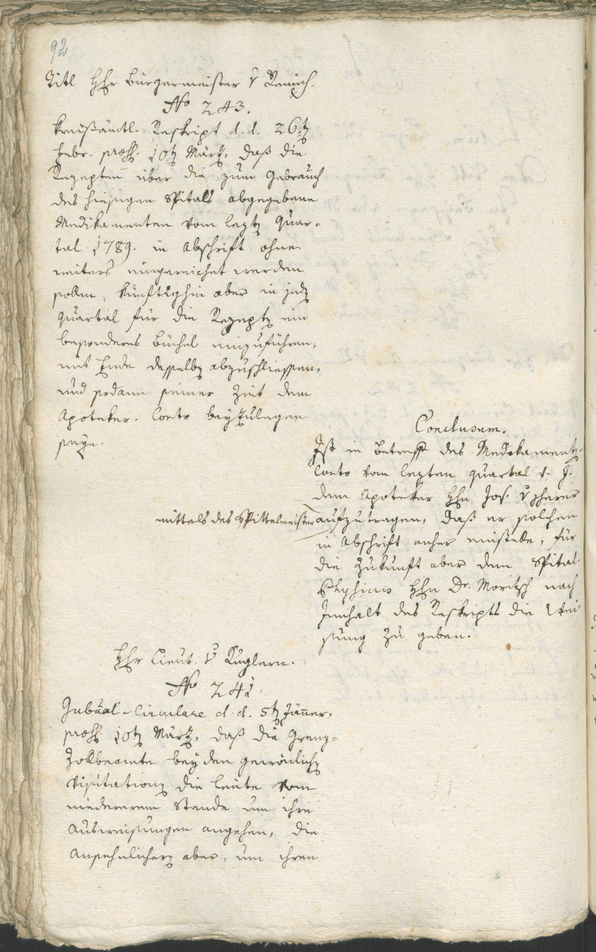 92
Titl Hhr Bürgermeister v
No 243.
Kreißämtl. Reskript d. d. 26ten
Febr. präs. 10ten Märtz, daß die
Rezepten über die zum Gebrauch
des hiesigen Spitals abgegebene
Medikamenten vom leztn Quar-
tal 1789. in Abschrift ohne
weiters eingereichet werden
sollen, künftighin aber in jedn
Quartal für die Rezepte ein
besonders Büchel einzuführen,
mit Ende desselbn abzuschliessen,
und sodann seiner Zeit dem
Apoteker-Conto beyzulegen
seye.
Conclusum.
Ist in Betreff des Medikamentn
Conto vom lezten Quartal v. J.
dem Apoteker Hhn Jos. v
mittels des Spittelmeister aufzutragen, daß er solchen
in Abschrift anher einstelle, für
die Zukunft aber dem Spital
Hhn Dr. Moritsch nach
Innhalt des Reskripts die Wei-
sung zu geben.
Hhr Lieut. v Kuglern.
No 241.
Gubaal-Circulare d. d. 5tn Jäner,
präs. 10tn Märtz, daß die Grenz-
Zollbeamte bey den gewönlichn
Visitationn die Leute vom
niedererem Stande um ihre
Ausweisungen angehen, die
Ansehnlichern aber, um ihren